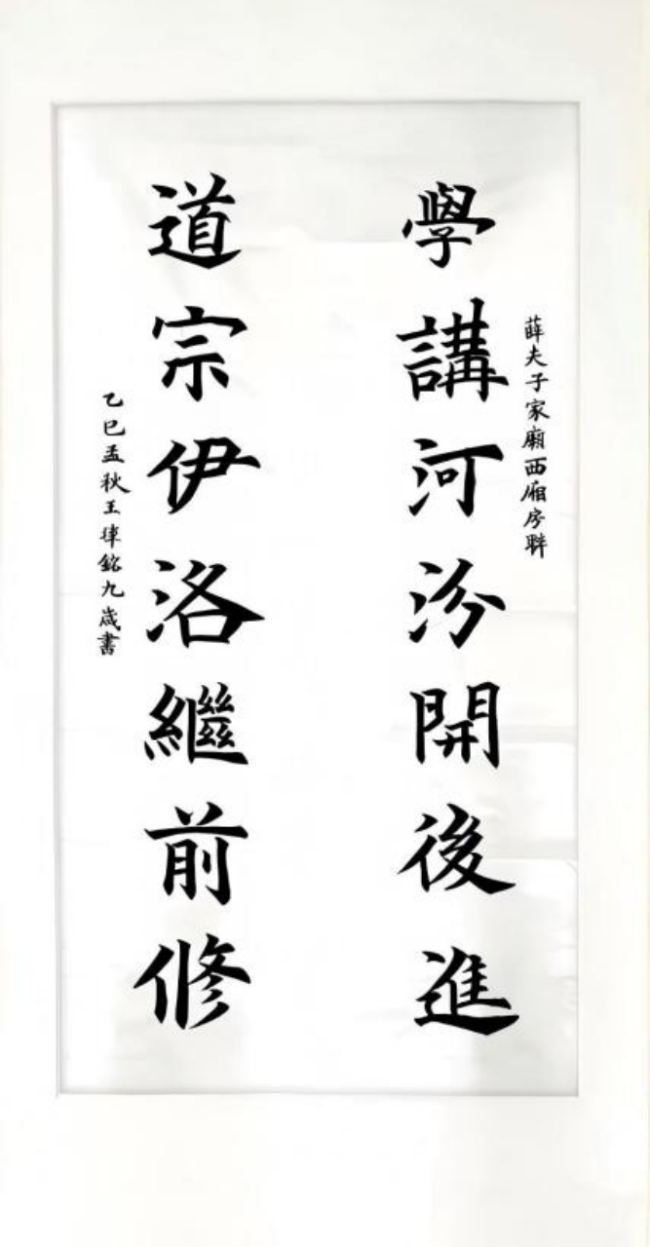 薛夫子家廟西廂房聯
學講河汾開後進
道宗伊洛繼前修
乙巳孟秋王律銘九歲書